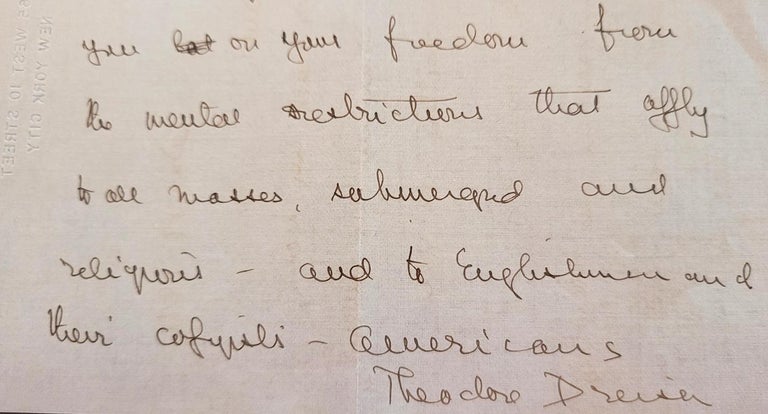 you but on your freedom from
the mental restrictions that apply
to all masses, submerged and
religious – and to Englishmen and
their copyists – Americans
Theodore Dreiser
WEST 10 STREET
NEW YORK CITY